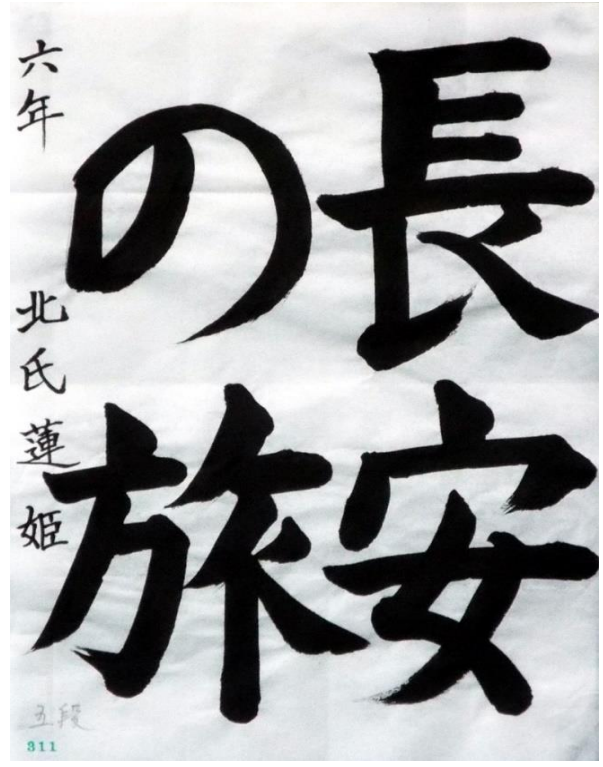 長安
の旅
六年 北氏蓮姫
五段
311